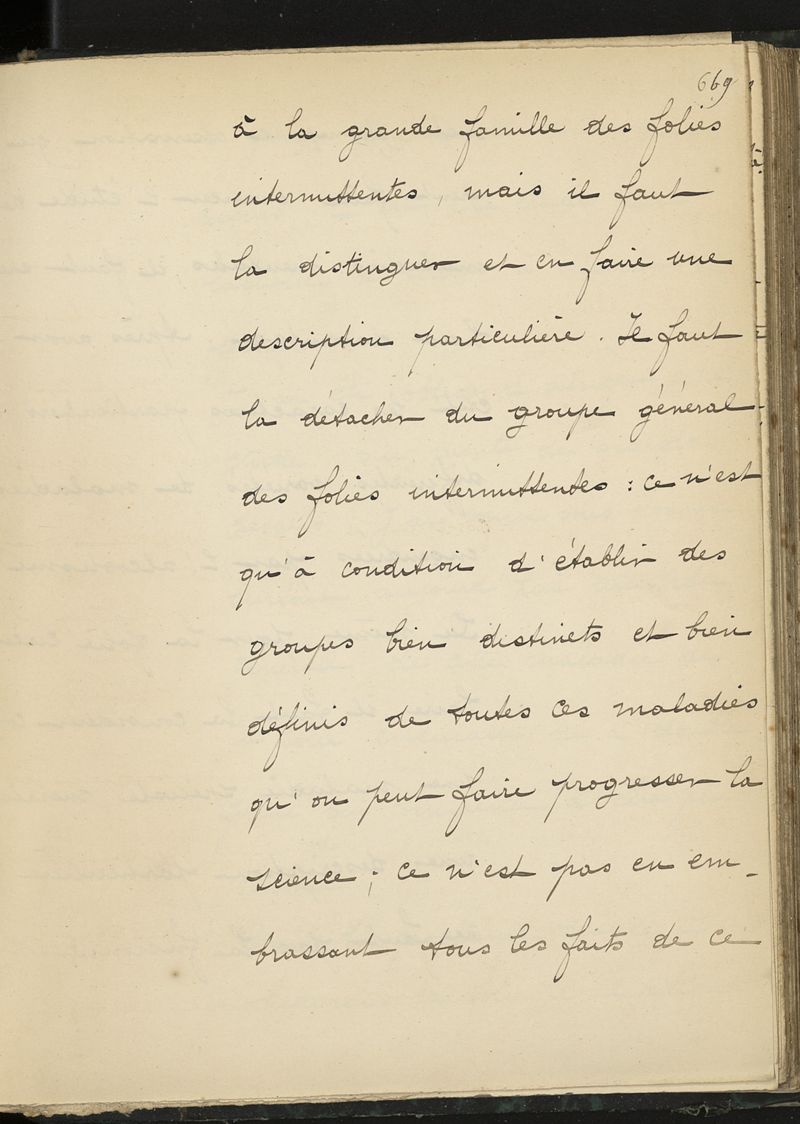 669
à la grande famille des folies
intermittentes, mais il faut
la distinguer et en faire une
description particulière. Il faut
la détacher du groupe général
des folies intermittentes : ce n'est
qu'à condition d'établir des
groupes bien distincts et bien
définis de toutes ces maladies
qu'on peut faire progresser la
science ; ce n'est pas en em-
brassant tous les faits de ce